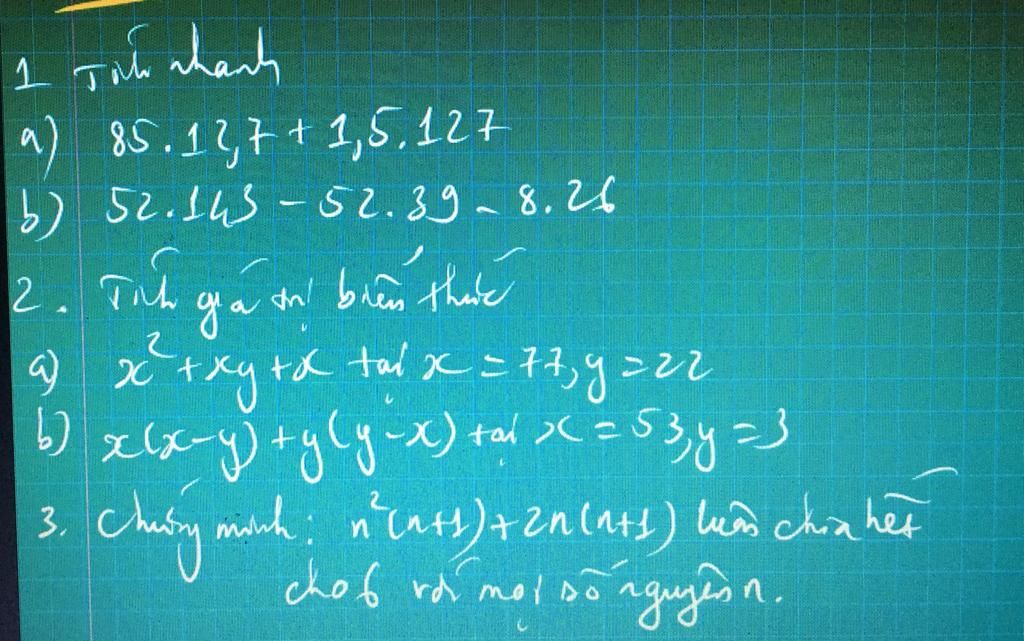 1 Tính nhanh
a) 85.12,7 + 1,5.127
b) 52.143 - 52.39 - 8.26
2. Tính giá trị biến thức
a) x² + xy + x tại x = 77, y = 22
b) x(x-y) + y(y-x) tại x = 53, y = 3
3. Chứng minh: n²(n+1) + 2n(n+1) luôn chia hết
cho 6 với mọi số nguyên n.